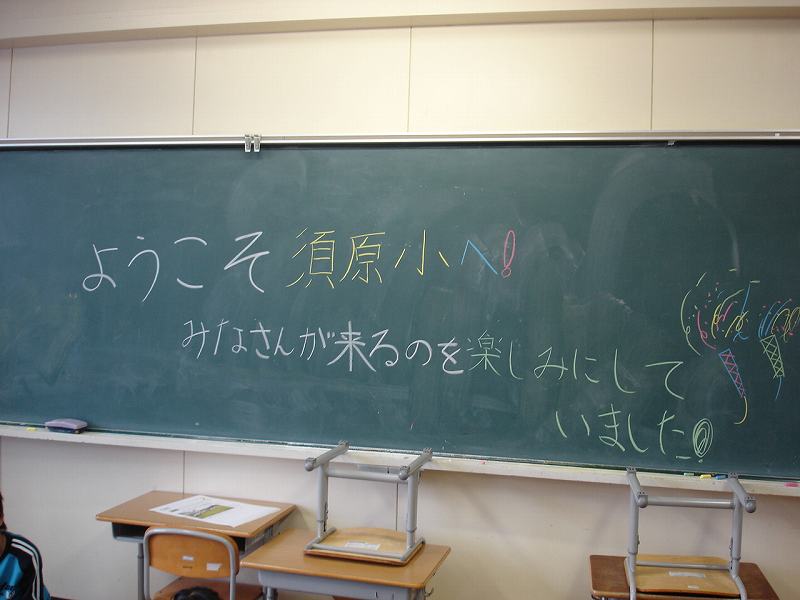 ようこそ須原小へ!
みなさんが来るのを楽しみにして
いました!